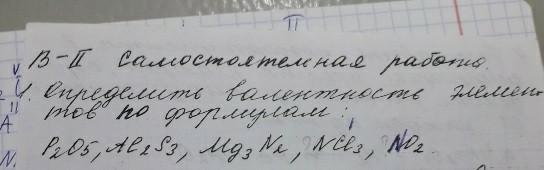 II
В-II Самостоятельная работа.
1. Определить валентность элемен-
тов по формулам:
P2O5, Al2S3, Mg3N2, NCl3, NO2.
A
N.